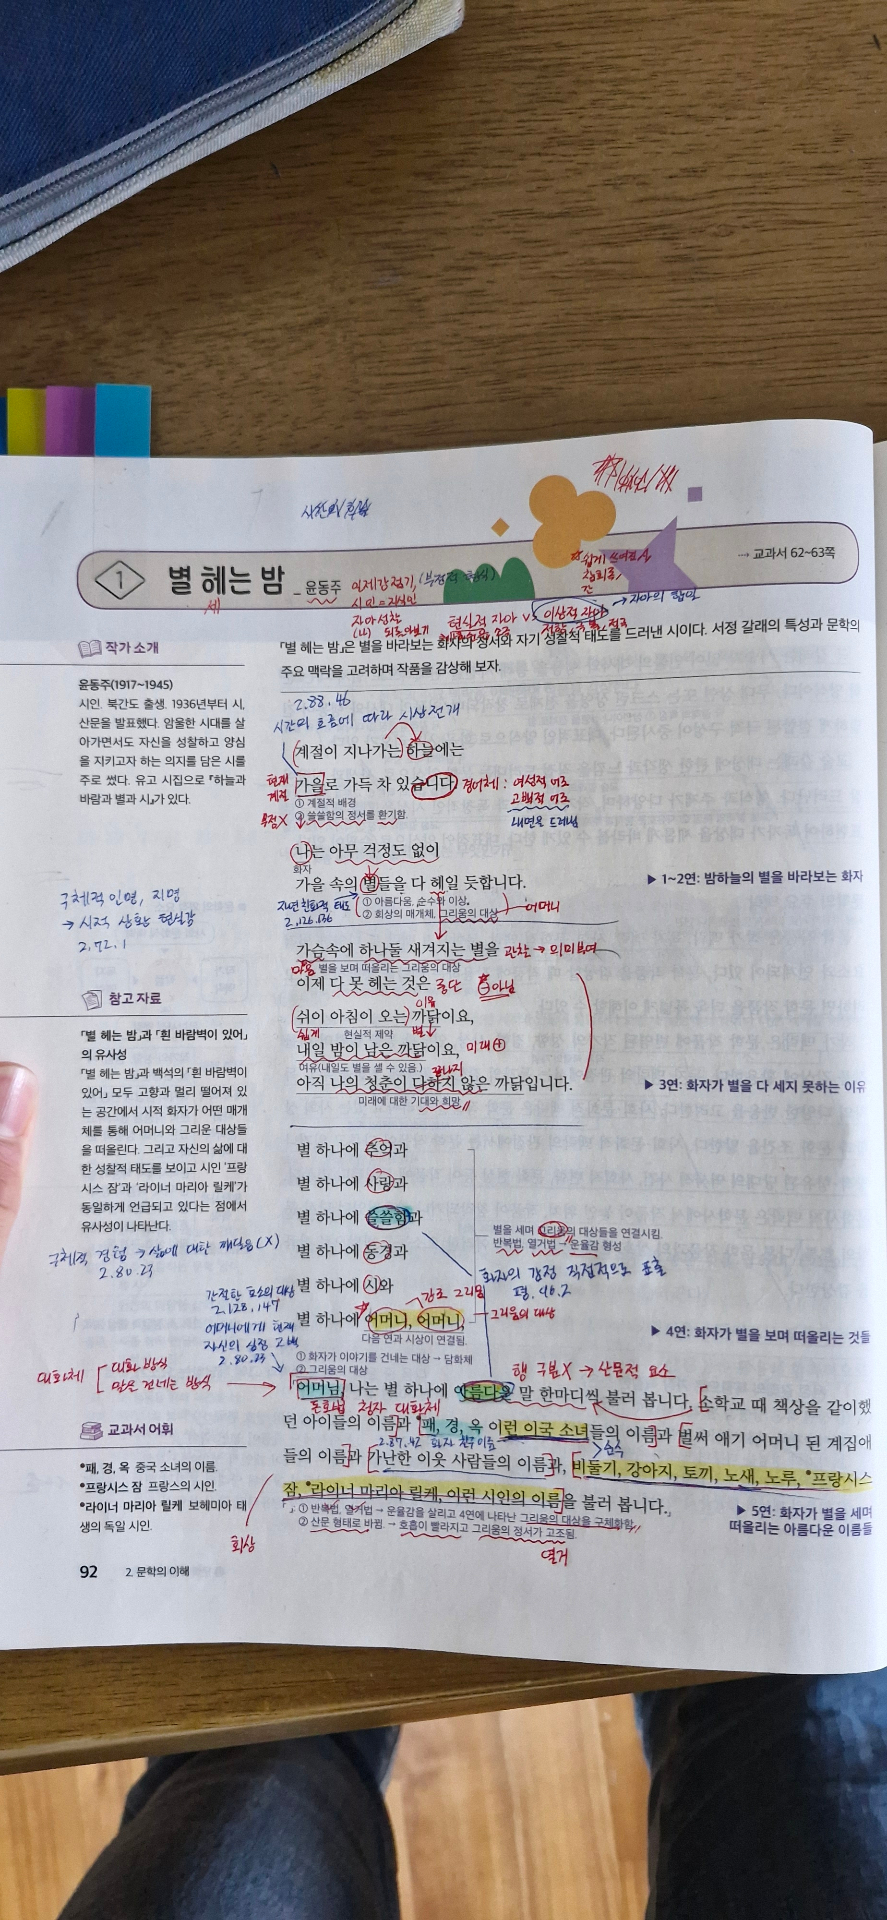 1 별 헤는 밤 _ 윤동주
→ 교과서 62~63쪽
일제강점기, (부정적 현실)
시인 = 지식인
자아성찰
현실적 자아 vs 이상적 자아
「별 헤는 밤」은 별을 바라보는 화자의 정서와 자기 성찰적 태도를 드러낸 시이다. 서정 갈래의 특성과 문학의
주요 맥락을 고려하며 작품을 감상해 보자.
작가 소개
윤동주(1917~1945)
시인. 북간도 출생. 1936년부터 시,
산문을 발표했다. 암울한 시대를 살
아가면서도 자신을 성찰하고 양심
을 지키고자 하는 의지를 담은 시를
주로 썼다. 유고 시집으로 『하늘과
바람과 별과 시』가 있다.
구체적 인명, 지명
→ 시적 상황 현실감
2.72.1
참고 자료
「별 헤는 밤」과 「흰 바람벽이 있어」
의 유사성
「별 헤는 밤」과 백석의 「흰 바람벽이
있어」 모두 고향과 멀리 떨어져 있
는 공간에서 시적 화자가 어떤 매개
체를 통해 어머니와 그리운 대상들
을 떠올린다. 그리고 자신의 삶에 대
한 성찰적 태도를 보이고 시인 '프랑
시스 잠'과 '라이너 마리아 릴케'가
동일하게 언급되고 있다는 점에서
유사성이 나타난다.
구체적 경험 → 삶에 대한 깨달음(X)
2.80.23
간절한 호소의 대상
2.128.147
어머니에게 현재
자신의 심정 고백
2.80.23
대화체
대화 방식
말을 건네는 방식
교과서 어휘
*패, 경, 옥 중국 소녀의 이름.
*프랑시스 잠 프랑스의 시인.
*라이너 마리아 릴케 보헤미아 태
생의 독일 시인.
회상
2.88.46
시간의 흐름에 따라 시상전개
계절이 지나가는 하늘에는
현재 계절
가을로 가득 차 있습니다.
경어체 : 여성적 어조
고백적 어조
내면을 드러냄
① 계절적 배경
② 쓸쓸함의 정서를 환기함.
나는 아무 걱정도 없이
화자
가을 속의 별들을 다 헤일 듯합니다.
① 아름다움, 순수와 이상.
② 회상의 매개체, 그리움의 대상
어머니
자연 친화적 태도
2.126.136
▶ 1~2연: 밤하늘의 별을 바라보는 화자
가슴속에 하나둘 새겨지는 별을 관찰 → 의미부여
마음
별을 보며 떠올리는 그리움의 대상
이제 다 못 헤는 것은 중단 ⊖아님
이유
쉬이 아침이 오는 까닭이요,
쉽게 현실적 제약
내일 밤이 남은 까닭이요, 미래⊕
여유(내일도 별을 셀 수 있음.)
아직 나의 청춘이 다하지 않은 까닭입니다.
미래에 대한 기대와 희망
▶ 3연: 화자가 별을 다 세지 못하는 이유
별 하나에 추억과
별 하나에 사랑과
별 하나에 쓸쓸함과
별 하나에 동경과
별 하나에 시와
별 하나에 어머니, 어머니,
별을 세며 그리움의 대상들을 연결시킴.
반복법, 열거법 → 운율감 형성
화자의 감정 직접적으로 표출
평.46.2
강조 그리움
그리움의 대상
다음 연과 시상이 연결됨.
▶ 4연: 화자가 별을 보며 떠올리는 것들
① 화자가 이야기를 건네는 대상 → 담화체
② 그리움의 대상
행 구분X → 산문적 요소
어머님, 나는 별 하나에 아름다운 말 한마디씩 불러 봅니다. 소학교 때 책상을 같이했
돈호법 청자 대화체
던 아이들의 이름과 *패, 경, 옥 이런 이국 소녀들의 이름과 벌써 애기 어머니 된 계집애
들의 이름과 가난한 이웃 사람들의 이름과, 비둘기, 강아지, 토끼, 노새, 노루, *프랑시스
잠, *라이너 마리아 릴케, 이런 시인의 이름을 불러 봅니다.
① 반복법, 열거법 → 운율감을 살리고 4연에 나타난 그리움의 대상을 구체화함.
② 산문 형태로 바뀜 → 호흡이 빨라지고 그리움의 정서가 고조됨.
열거
▶ 5연: 화자가 별을 세며
떠올리는 아름다운 이름들
92 2. 문학의 이해